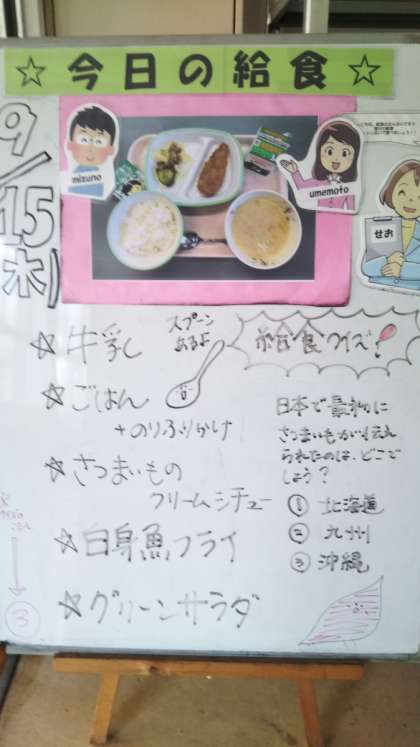 ☆ 今日の給食 ☆
9/15(木)
mizuno
umemoto
せお
☆ 牛乳
スプーン
あるよ
☆ ごはん
+のりふりかけ
☆ さつまいもの
クリームシチュー
☆ 白身魚フライ
☆ グリーンサラダ
給食クイズ!
日本で最初に
さつまいもが伝え
られたのは、どこで
しょう?
① 北海道
② 九州
③ 沖縄
③